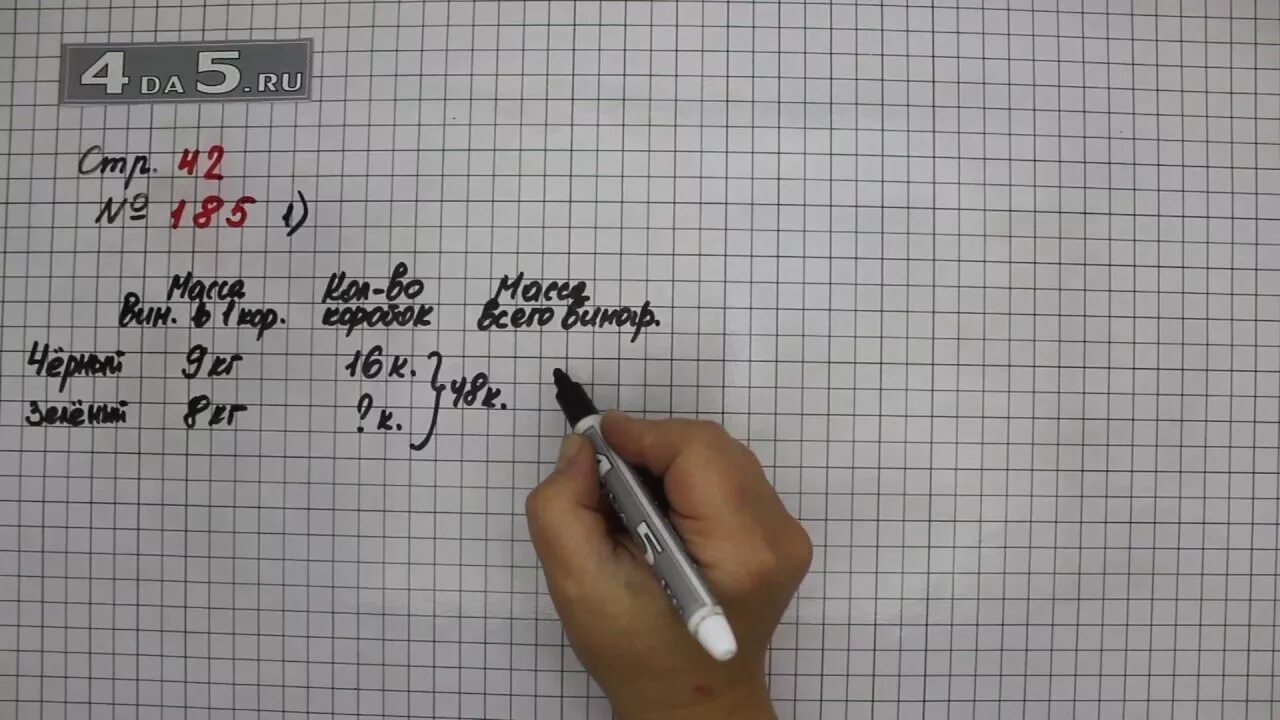 4 DA 5.RU
Стр. 42
№ 185 1)
Масса Кол-во Масса
Вин. в 1 кор. коробок всего виногр.
Чёрный 9 кг 16 к.
48 к.
Зелёный 8 кг ? к.
5